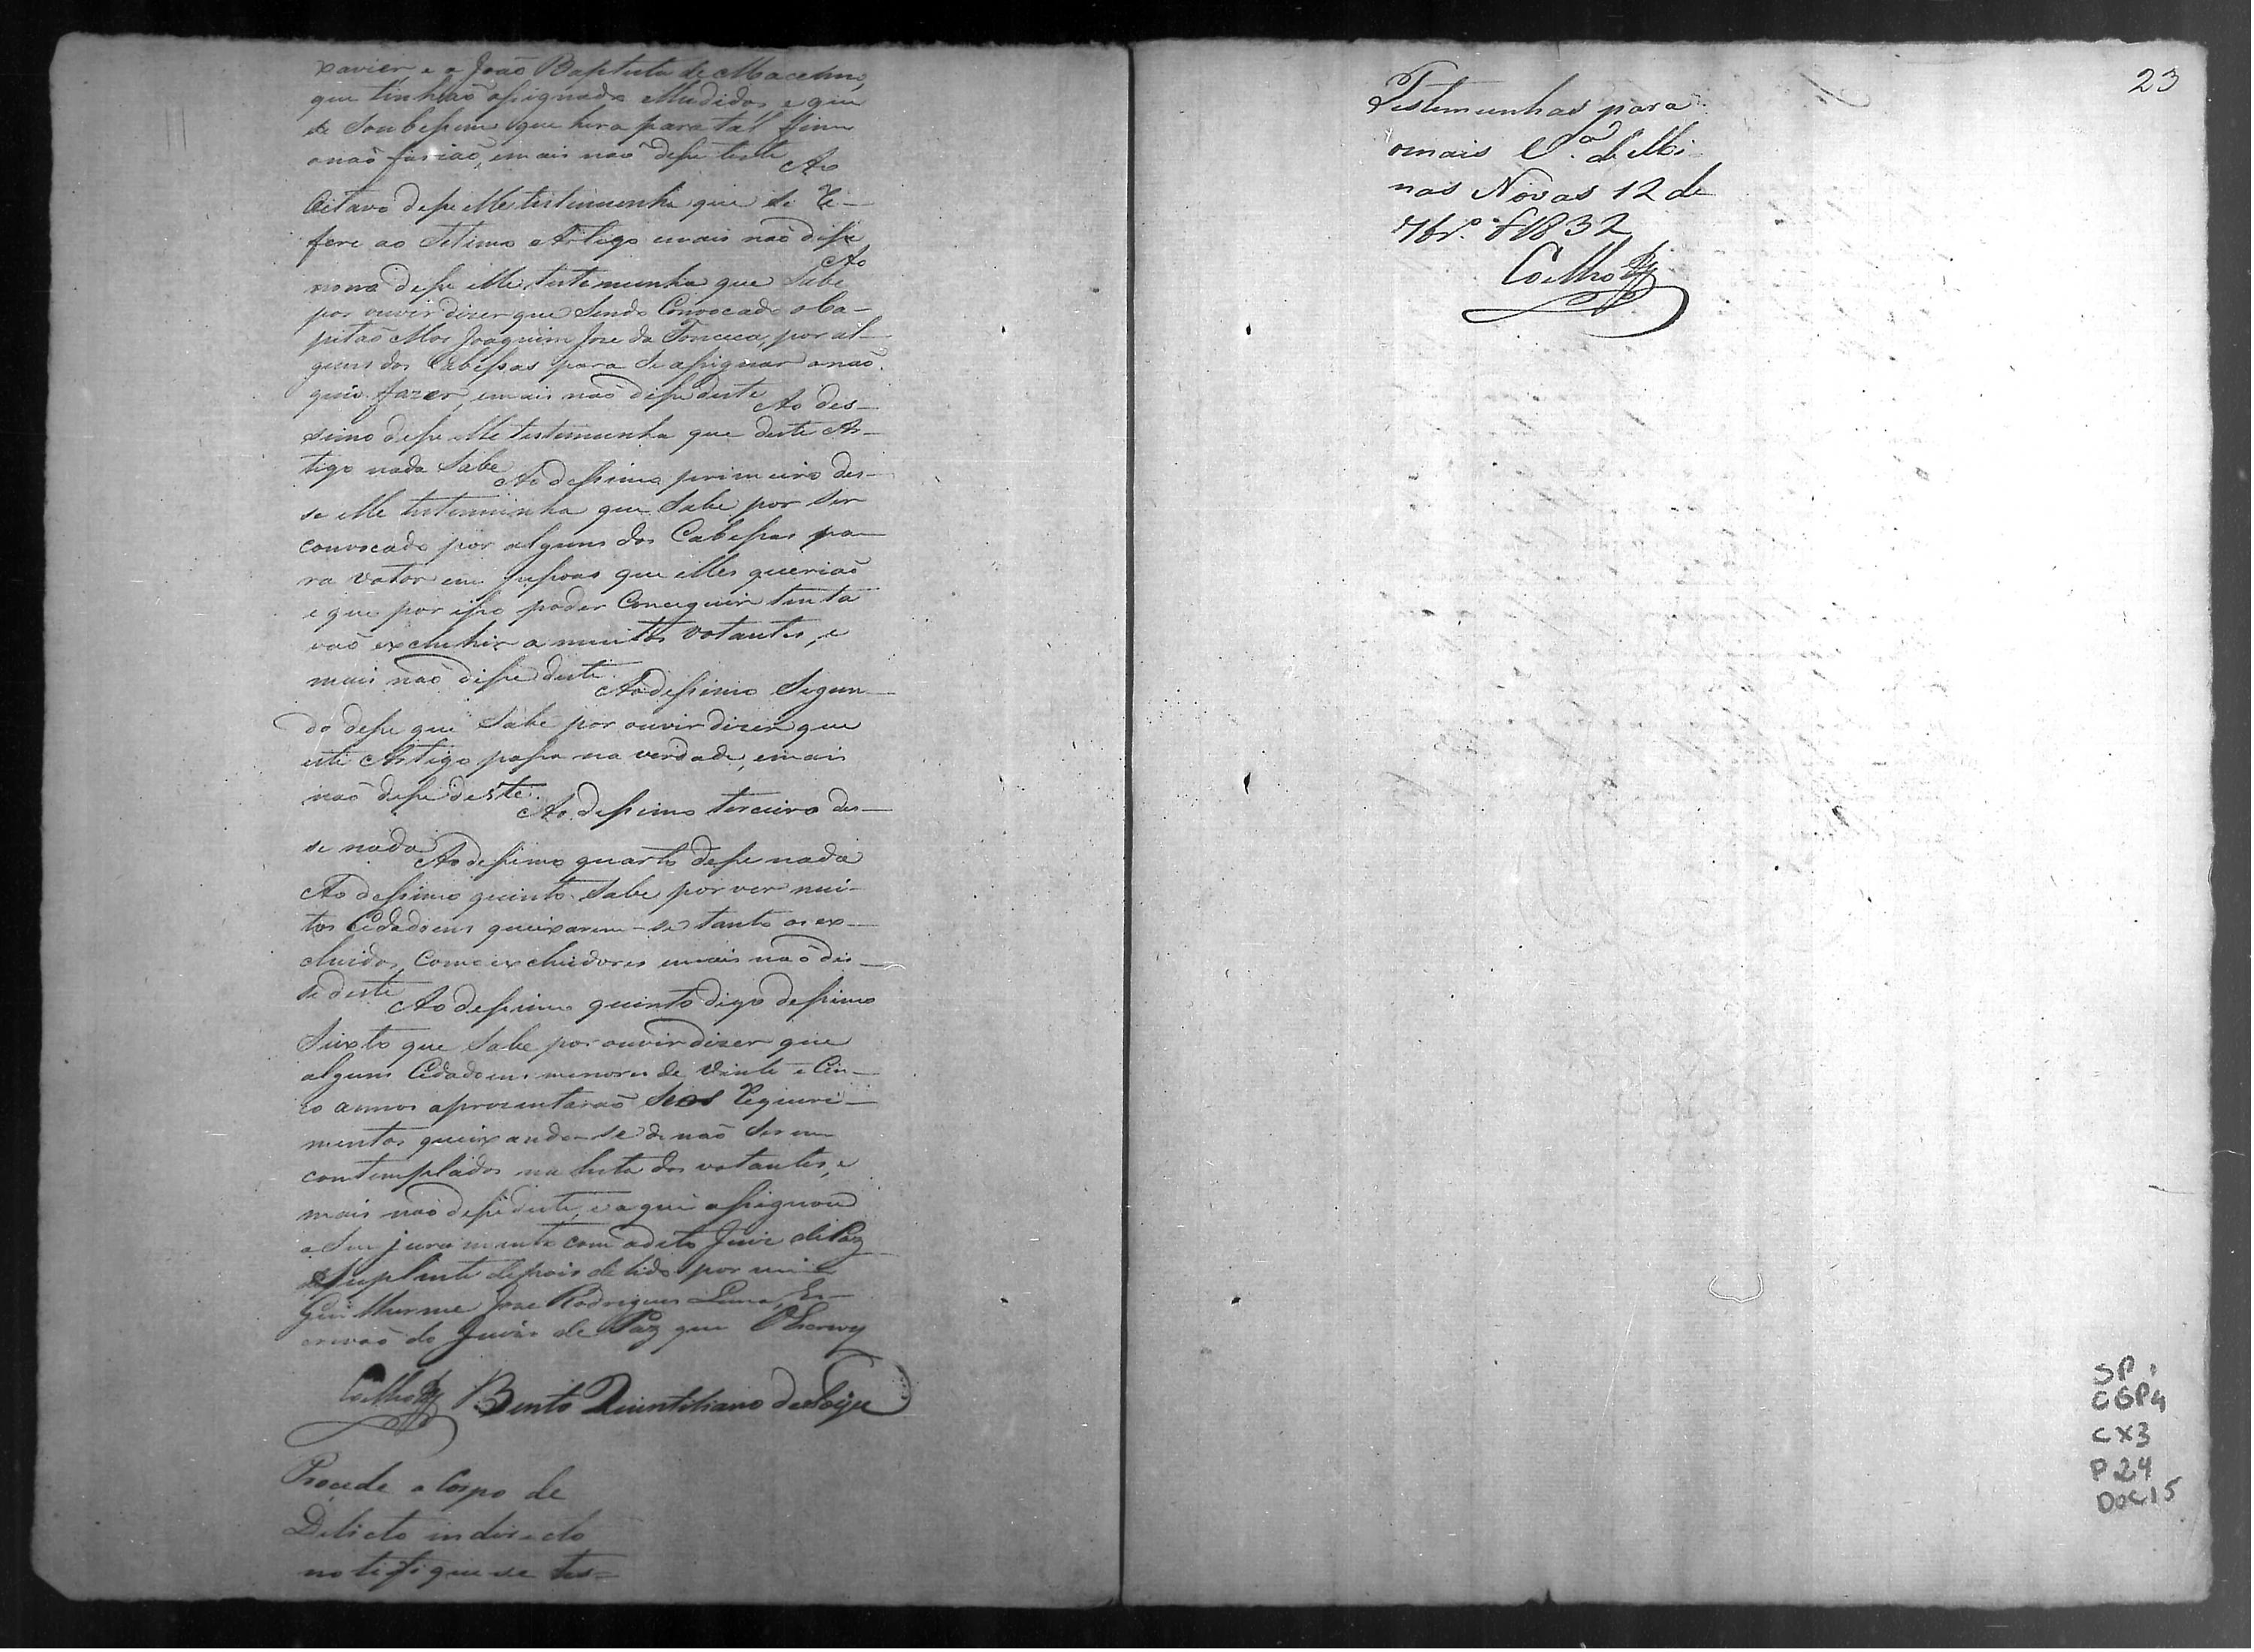 Xavier, e a João Baptista de Macedino,
que tinhão assignado elludidos e que
se Soubessem que hera para tal fim
onão farião, emais naõ desse deste Ao
Oitavo desse elle testemunha que se Re-
fere ao Setimo Artigo emais naõ disse
Ao
nono desse elle testemunha que Sabe
por ouvir dizer que Sendo Convocado o Ca-
pitaõ Mor Joaquim Joze da Fonceca, por al-
guns dos Cabessas para Se assignar onaõ
quis fazer, emais naõ disse deste Ao des-
simo desse elle testemunha que deste Ar-
tigo nada Sabe Ao dessimo primeiro des-
se elle testemunha que Sabe por Ser
convocado por alguns dos Cabessas pa-
ra votar em pessoas que elles queriaõ
e que por isso poder Conceguir tenta
vaõ excluhir a muitos votantes, e
mais naõ disse deste. Ao dessimo Segun-
do desse que Sabe por ouvir dizer que
este Artigo passa na verdade, emais
naõ desse deste. Ao dessimo terceiro des-
se nada Ao dessimo quarto desse nada
Ao dessimo quinto Sabe por ver mui-
tos Cidadoens queixarem-se tanto os ex-
cluidos, Como excluidores emais naõ dis-
se deste Ao dessimo quinto digo dessimo
Seixto que Sabe por ouvir dizer que
alguns Cidadoens menores de Vinte e Cin-
co annos aprezentaraõ Seos Requeri-
mentos queixando-se de naõ Serem
contemplados na lista dos votantes, e
mais naõ desse deste, e aqui assignou
o Seu juramento com o dito Juis de Paz
Suplente depois de lido por mim
Guilherme Joze Rodrigues Lima, Es-
crivaõ do Juizo de Paz que o Escrevy
Coelho Bento Quintiliano de
Procede a Corpo de
Delicto indirecto
notifique se tes=
23
Testemunhas para
omais Va. de Mi-
nas Novas 12 de
7br.º de 1832
Coelho
SP
CGP4
CX3
P24
DOC15